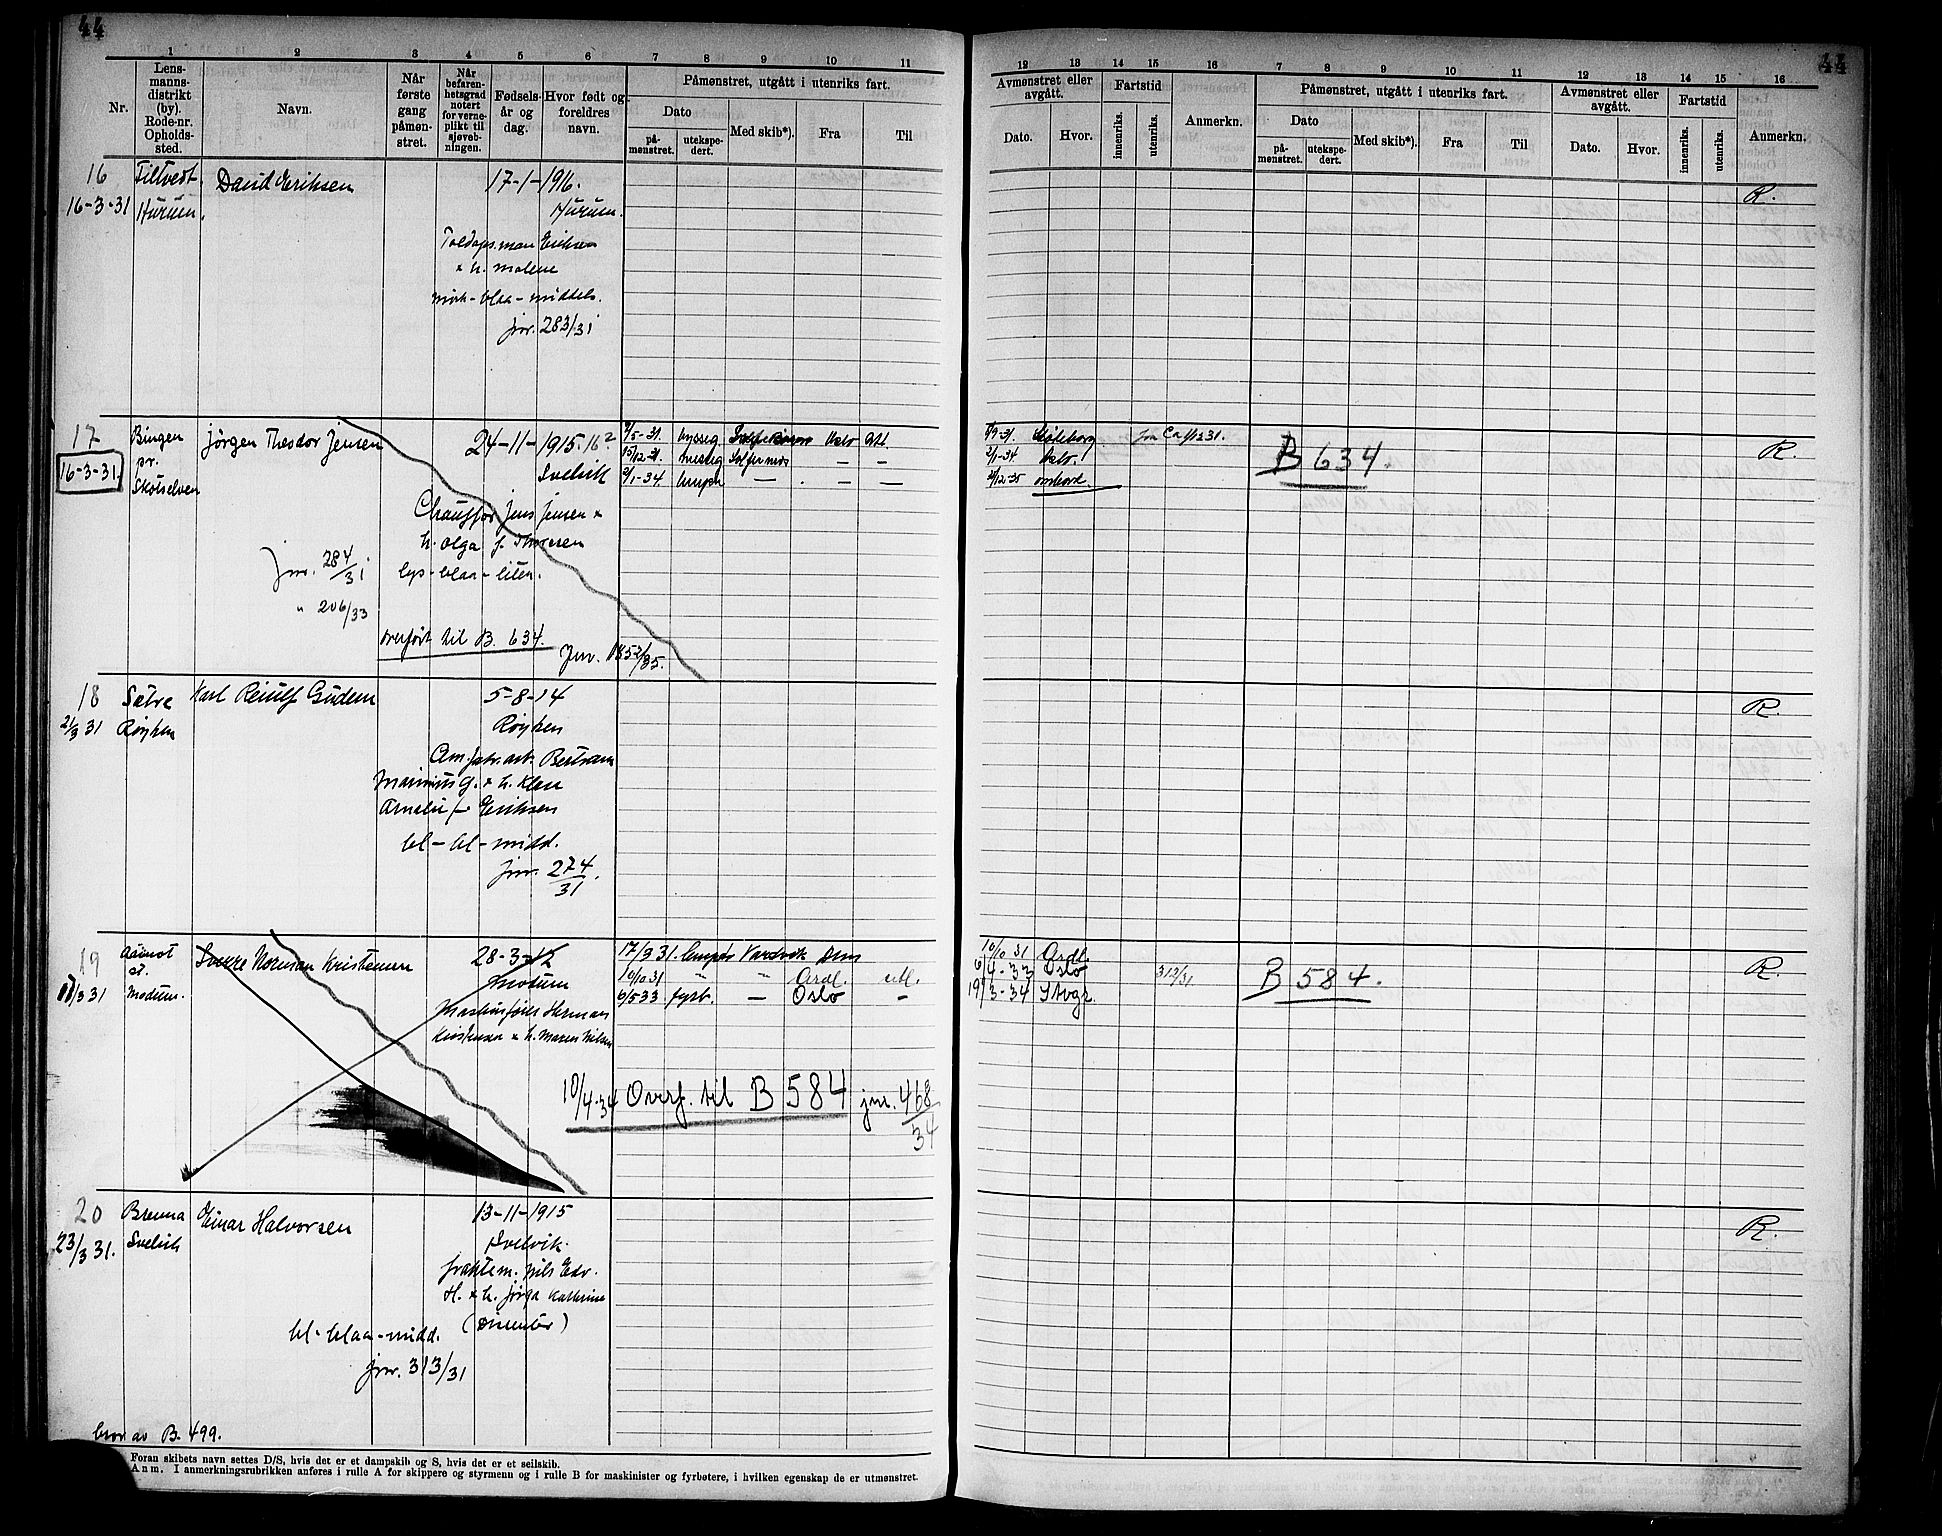 44
1 2 3 4 5 6 7 8 9 10 11
Nr.
Lens-
manns-
distrikt
(by).
Rode-nr.
Opholds-
sted.
Navn.
Når
første
gang
påmøn-
stret.
Når
befaren-
hetsgrad
notert
for verne-
plikt til
sjøveb-
ningen.
Fødsels-
år og
dag.
Hvor født og
foreldres
navn.
Påmønstret, utgått i utenriks fart.
Dato
på-
mønstret.
utekspe-
dert.
Med skib*).
Fra
Til
16
16-3-31
Tiltvedt
Hurum.
David Eriksen
17-1-1916.
Hurum.
Toldops.man Eriksen
& h. Malene
mörk-blaa-middels.
jnr. 283/31
17
16-3-31.
Bingen
pr.
Skotselven
Jörgen Theodor Jensen
24-11-1915.
Svelvik
Chauffør Jens Jensen &
h. Olga f. Thoresen
lys-blaa-liten.
jnr. 284/31
" 206/33
overført til B. 634.
Jnr. 1852/35.
15/12-31.
2/1-34.
18
21/3 31
Sætre
Røyken
Karl Reiulf Gudem
5-8-14
Røyken
Am.fabr.arb. Bertram
Marinius G. & h. Klara
Amalie f. Eriksen
bl-bl-midd.
jnr. 274/31.
19
Aamot
st.
Modum.
Sverre Norman Kristensen
28-3-12
Modum
Maskinfører Herman
Kristensen & h. Maren Nilsen
17/3 31.
10/10 31
6/5 33 fyrb. — Oslo —
10/4-34 Overf. til B 584 jnr. 468/34
20
23/3 31.
Brenna
Svelvik
Einar Halvorsen
13-11-1915
Svelvik.
fraktem. Nils Edv.
H. & h. Jörga Kathrine
bl-blaa-midd.
jnr. 313/31
bror av B. 499.
Foran skibets navn settes D/S, hvis det er et dampskib og S, hvis det er et seilskib.
Anm. I anmerkningsrubrikken anføres i rulle A for skippere og styrmenn og i rulle B for maskinister og fyrbøtere, i hvilken egenskap de er utmønstret.
44
12 13 14 15 16 7 8 9 10 11 12 13 14 15 16
Avmønstret eller
avgått.
Dato.
Hvor.
Fartstid
innenriks.
utenriks.
Anmerkn.
Påmønstret, utgått i utenriks fart.
Dato
på-
mønstret.
utekspe-
dert.
Med skib*).
Fra
Til
Avmønstret eller
avgått.
Dato.
Hvor.
Fartstid
innenriks.
utenriks.
Anmerkn.
R.
Gøteborg
2/1-34 Oslo.
ombord.
B 634.
R.
R.
10/10 31
6/4-33 Oslo
19/3-34 Stvgr.
312/31
B 584.
R.
R.